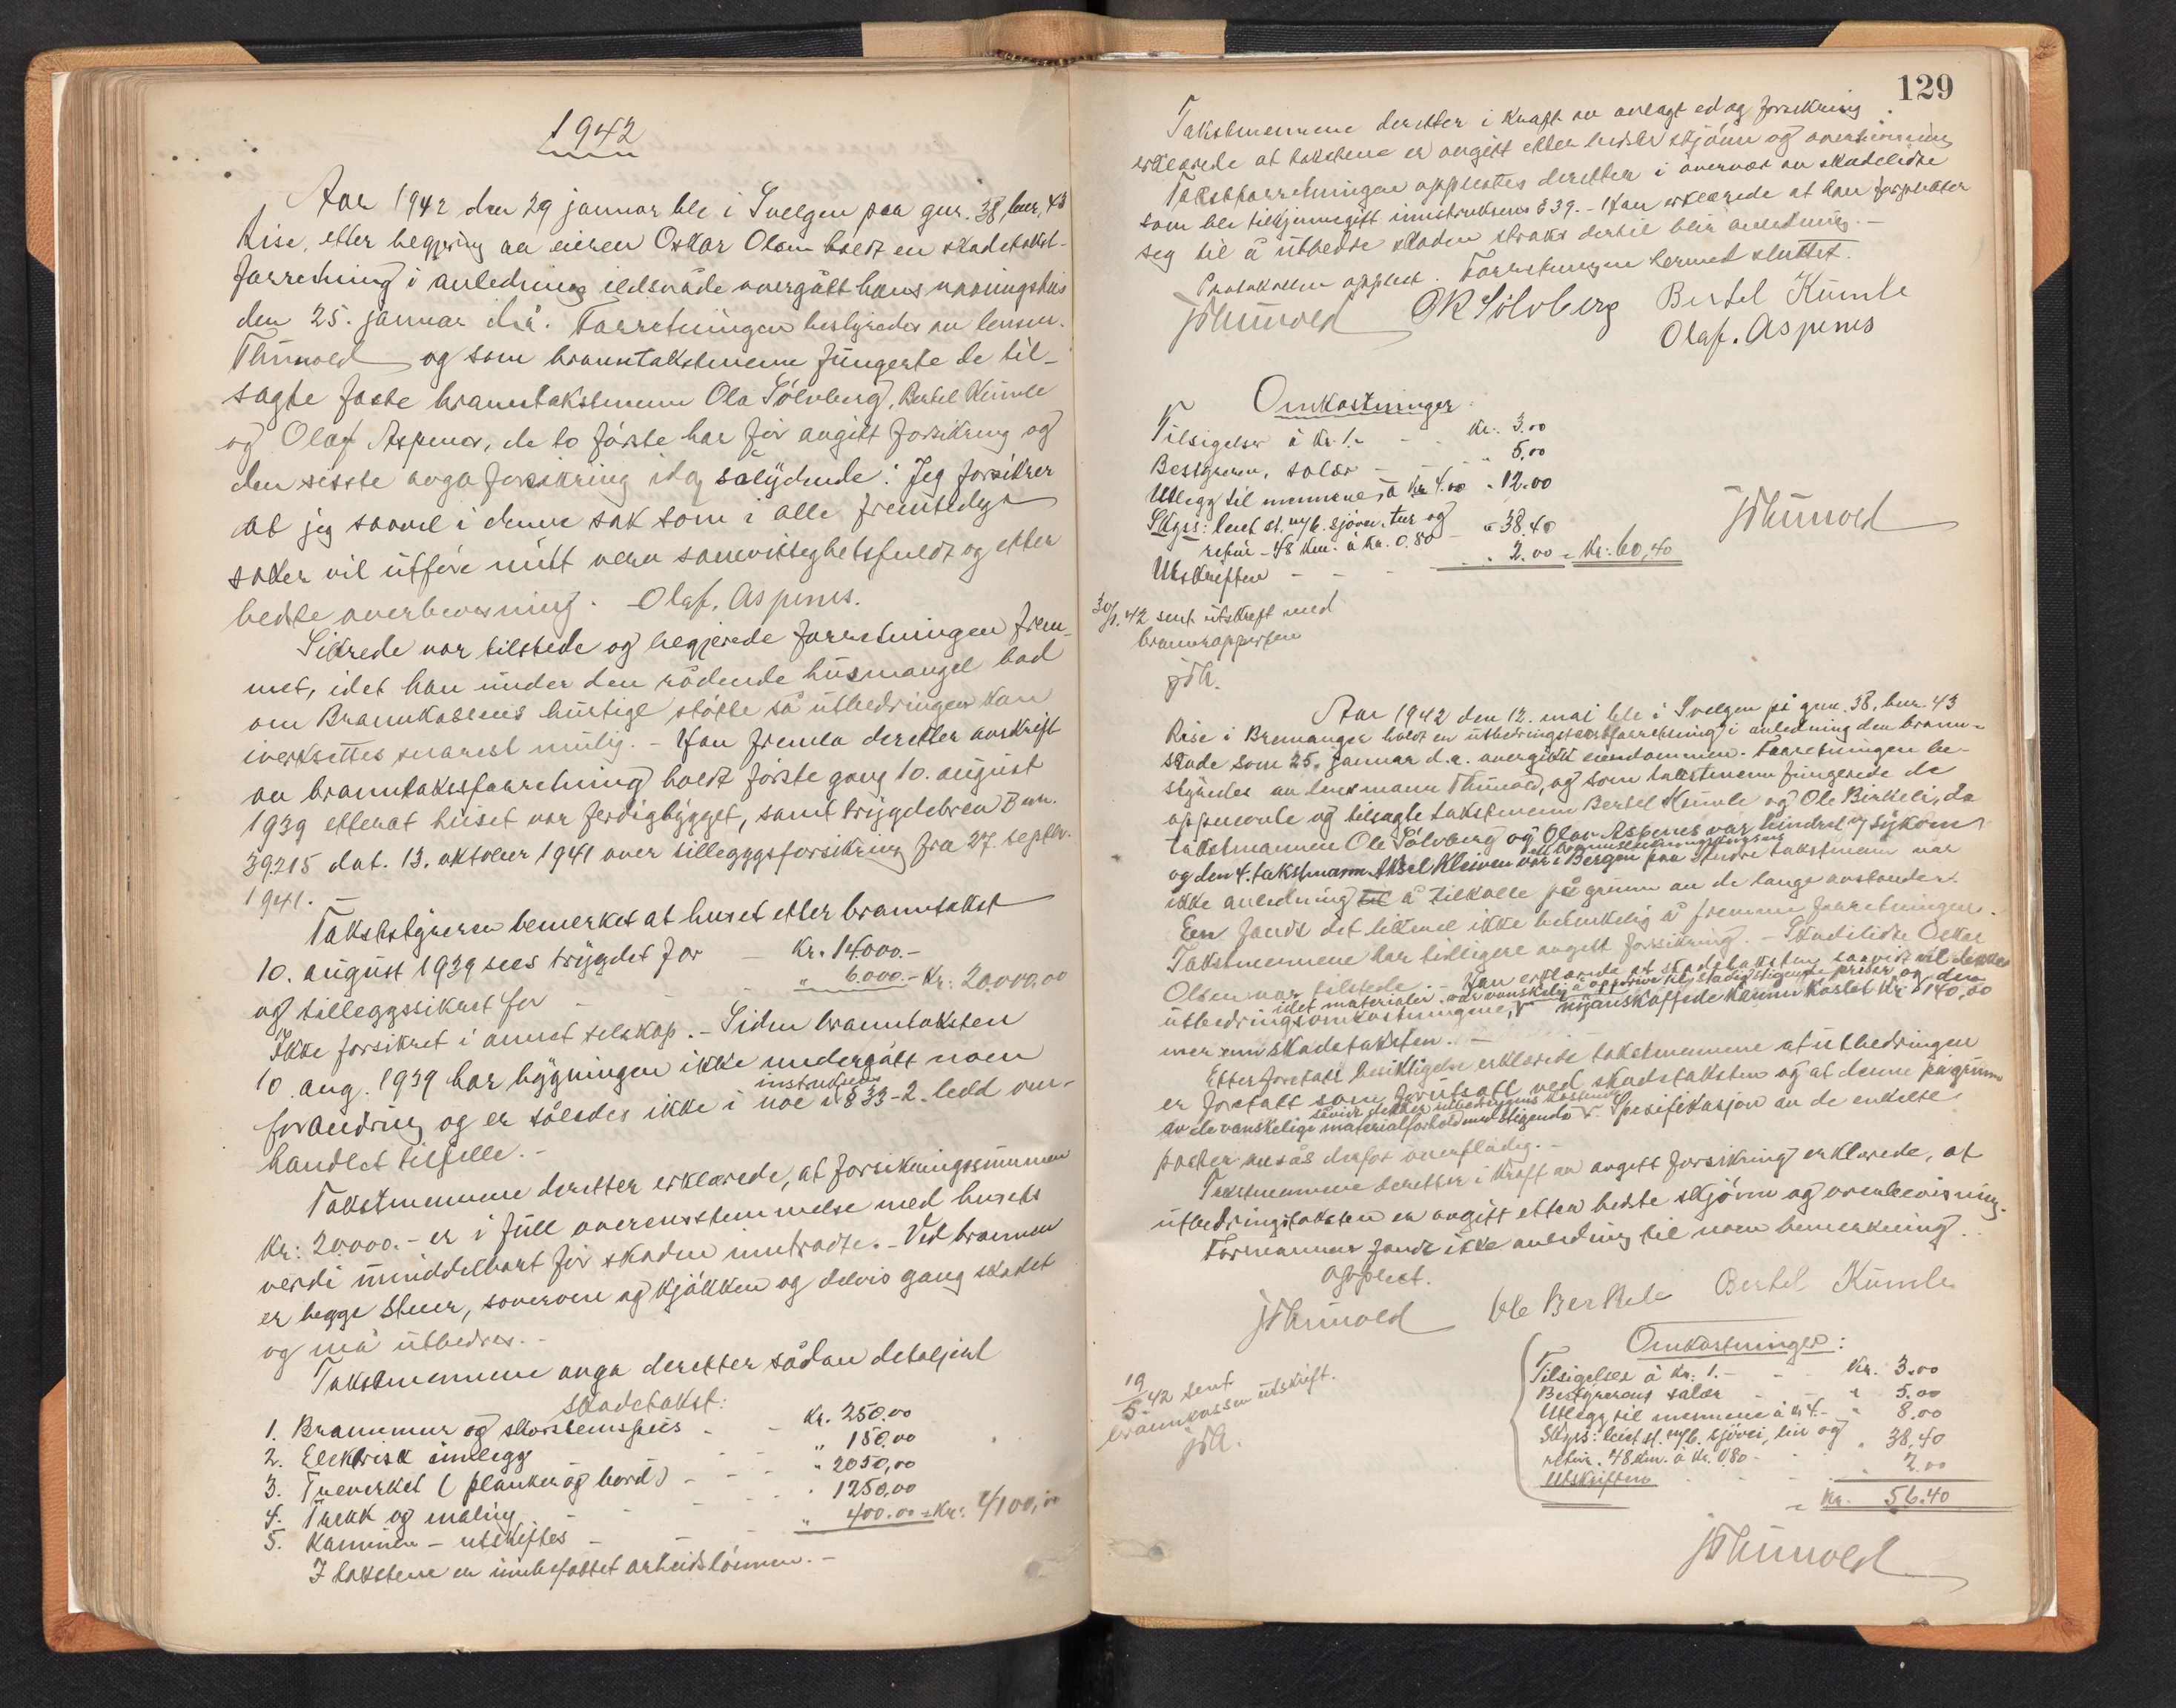 1942
Aar 1942 den 29 januar ble i Svelgen paa gnr. 38, bnr. 43
Rise, etter begjæring av eieren Oskar Olsen holdt en skadetakst-
forretning i anledning ildsvåde overgått hans vaaningshus
den 25. januar d.å. Forretningen bestyredes av lensm.
Thunold og som branntakstmenn fungerte de til-
sagte faste branntakstmenn Ola Sölvberg, Bertel Kumle
og Olaf Aspenes, de to förste har för avgitt forsikring og
den sisste avga forsikring idag sålydende: Jeg forsikrer
at jeg saavel i denne sak som i alle fremtidige
saker vil utföre mitt verv samvittighetsfuldt og etter
bedste overbevisning. Olaf. Aspenes.
Sikrede var tilstede og begjærede forretningen frem-
met, idet han under den rådende husmangel bad
om Brannkassens hurtige stötte så utbedringen kan
iverksettes snarest mulig. - Han fremla deretter avskrift
av branntakstforretning holdt förste gang 10. august
1939 etterat huset var ferdigbygget, samt trygdebrev B nr.
39215 dat. 13. oktober 1941 over tilleggsforsikring fra 27. septbr.
1941. -
Takstbestyreren bemerket at huset etter branntakst
10. august 1939 sees trygdet for - Kr. 14000.-
og tilleggssikret for - - - " 6000.- Kr: 20000,00
Ikke forsikret i annet selskap. - Siden branntaksten
10. aug. 1939 har bygningen ikke undergått noen
forandring og er således ikke i noe i instruksens § 33 - 2. ledd om-
handlet tilfelle. -
Takstmennene deretter erklærede, at forsikringssummen
Kr: 20000.- er i full overensstemmelse med husets
verdi umiddelbart för skaden inntradte. - Ved brannen
er begge stuer, soverom og kjökken og delvis gang skadet
og må utbedres. -
Takstmennene avga deretter sådan detaljert
skadetakst:
1. Brannmur og skorstenspus - - Kr. 250.00
2. Elektrisk innlegg - - " 150,00
3. Treverket (planker og bord) - - - " 2050,00
4. Trekk og maling - - - " 1250,00
5. Kaminen - utskiftes - - - " 400.00 = Kr: 4100,00
I takstene er innbefattet arbeidslönnen. -
129
Takstmennene deretter i kraft av avlagt ed og forsikring
erklærede at takstene er avgitt etter bedste skjönn og overbevisning
Takstforretningen opplestes deretter i overvær av skadelidte
som ble tilkjennegitt innstruksens § 39. - Han erklærede at han forplikter
seg til å utbedre skaden straks dertil blir anledning. -
Protokollen opplest. Forretningen hermed sluttet.
JThunold OR Sölvberg Bertel Kumle
Olaf. Aspenes
Omkostninger:
Tilsigelser à Kr. 1.- - - Kr. 3.00
Bestyreren, salær - - - " 5,00
Utlegg til mennene, à Kr 4.00 " 12.00
Skyss: leiet st. m/b. sjövei, tur og
retur - 48 km. à Kr. 0.80 - " 38.40
Utskriften - - - " 2.00 = Kr: 60,40
JThunold
30/1. 42 sent utskrift med
brannrapporten
JTh.
Aar 1942 den 12. mai ble i Svelgen på gnr. 38, bnr. 43
Rise i Bremanger holdt en utbedringstakstforretning i anledning den brann-
skade som 25. januar d.a. overgikk eiendommen. Forretningen be-
styredes av lensmann Thunold, og som takstmenn fungerede de
oppnevnte og tilsagte takstmenn Bertel Kumle og Ole Birkeli, da
takstmannen Ole Sölvberg og Olav Aspenes var hindret v/ sykdom
og den 4. takstmann Aksel Kleiven var i Bergen paa Andre takstmenn var
ikke anledning til å tilkalle på grunn av de lange avstander.
Een fandt det likevel ikke betenkelig å fremme forretningen.
Takstmennene har tidligere avgitt forsikring. - Skadelidte Oskar
Olsen var tilstede. - Han erklærede at skadetaksten saavidt vil dekke
idet materialer var vanskelig å oppdrive til stadig stigende priser og den
utbedringsomkostningene, nyanskaffede kamin kostet Kr 140,00
mer enn skadetaksten. -
Etter foretatt besiktigelse erklærede takstmennene at utbedringen
er foretatt som forutsatt ved skadetaksten og at denne på grunn
såvidt dekker utbedringens kostende
av de vanskelige materialforhold med stigende Spesifikasjon av de enkelte
poster ansås derfor overflödig. -
Takstmennene deretter i kraft av avgitt forsikring erklærede, at
utbedringstaksten er avgitt etter bedste skjönn og overbevisning.
Formannen fandt ikke anledning til noen bemerkning.
Opplest.
JThunold Ole Berkele Bertel Kumle
Omkostninger:
Tilsigelser à Kr. 1.- - - Kr. 3.00
Bestyrerens salær - - " 5.00
Utlegg til mennene à Kr 4.- " 8.00
Skyss: leiet st. m/b. sjövei, tur og
retur. 48 km. à Kr. 0.80 - " 38,40
Utskriften - - - " 2.00
= Kr. 56.40
19/5. 42 sent
brannkassen utskrift.
JTh.
JThunold